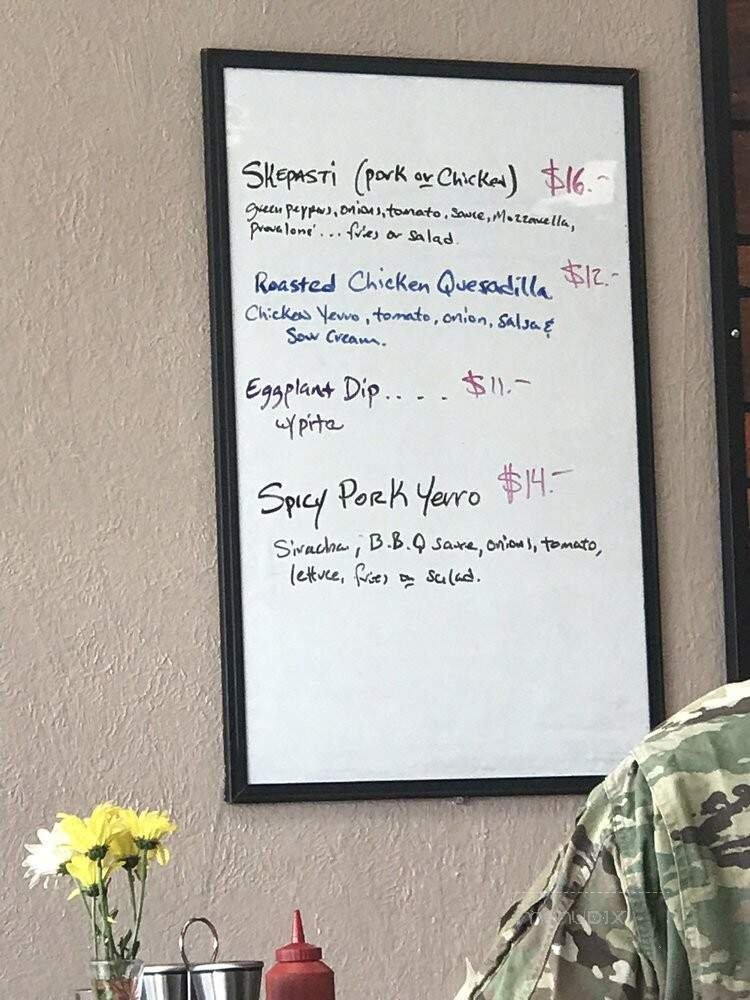 SKEPASTi (pork or Chicken) $16.-
green peppers, onions, tomato, sauce, Mozzarella,
Provalone... fries or salad.
Roasted Chicken Quesadilla $12.-
Chicken Yevro, tomato, onion, salsa &
Sour Cream.
Eggplant Dip.... $11.-
w/pita
Spicy PORK Yevro $14.-
Siracha, B.B.Q sauce, onions, tomato,
lettuce, fries or salad.